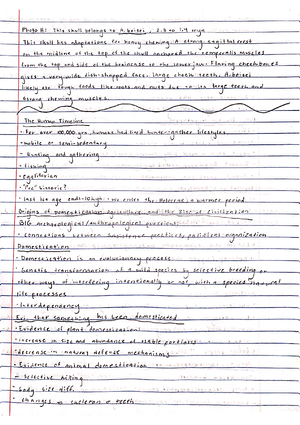 Photo #1: This skull belongs to A. boisei, 2.3 to 1.4 mya
This skull has adaptations for heavy chewing. A strong sagittal crest
on the midline of the top of the skull anchored the temporalis muscles
from the top and side of the braincase to the lower jaw. Flaring cheekbones
gives a very wide dish-shaped face, large cheek teeth. A. boisei
likely ate tough foods like roots and nuts due to its large teeth and
strong chewing muscles.
The Human Timeline
- For over 100,000 yrs, humans had lived hunter-gather lifestyles
- mobile or semi-sedentary
- Hunting and gathering
- Fishing
- Egalitarian
- "Pre" historic?
- last ice age ends ~10 kya - we enter the Holocene, a warmer period
Origins of Domestication, Agriculture and the Rise of Civilization
BIG archaeological/anthropological questions:
- connections between subsistence practices, political organization
Domestication
- Domestication is an evolutionary process
- Genetic transformation of a wild species by selective breeding or
other ways of interfering, intentionally or not, with a species natural
life processes
- Interdependency
Evi. that something has been domesticated
- Evidence of plant domestication:
- increase in size and abundance of edible portions
- decrease in natural defense mechanisms
- Evidence of animal domestication
- Selective killing
- body size diff.
- changes in skeleton & teeth